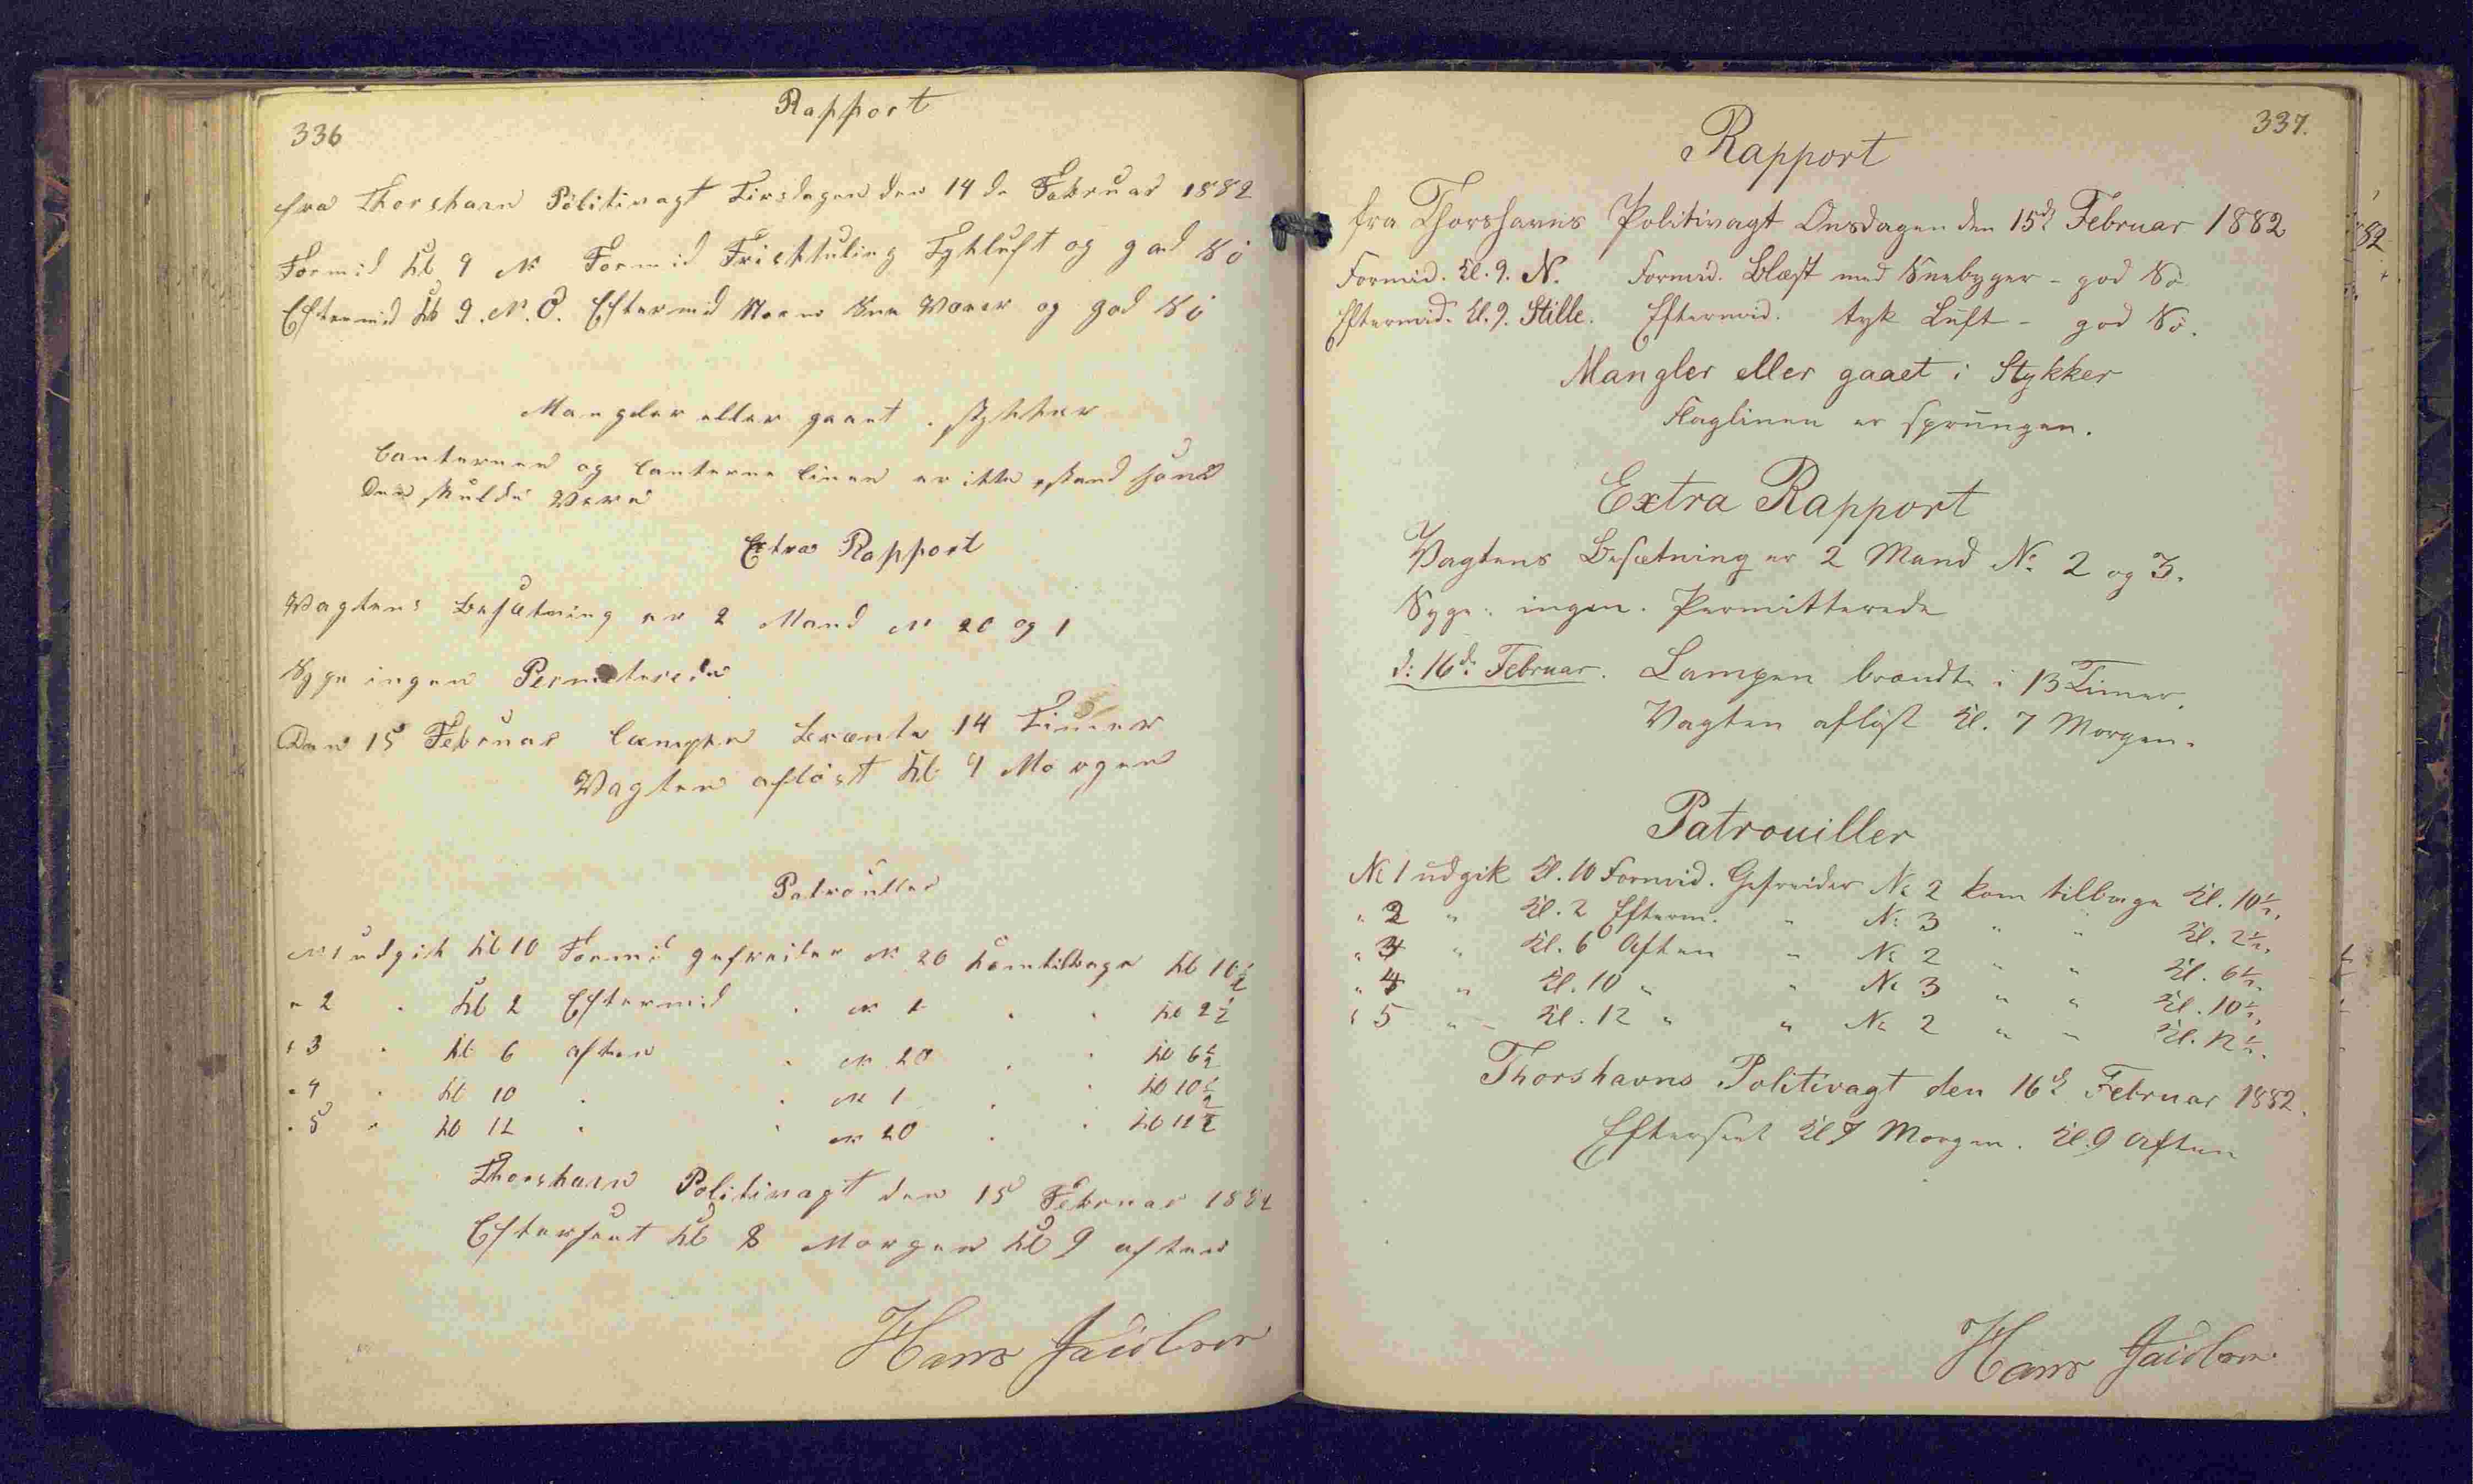 336
Rapport
fra Thorshavn Politivagt Tirsdagen den 14 de Februar 1882
Formid Kl 9 N Formid Frisk Kuling Tykluft og god Sö
Eftermid Kl 9. N. O. Eftermid Sne og god Sö
Mangler eller gaaet i stykker
Lanternen og Lanterne linen er ikke istand som
den skulde Være
Extra Rapport
Vagtens Besætning er 2 Mand N 20 og 1
Syge ingen Permeterede
Den 15 Februar Lampen Brænte 14 Timer
Vagten aflöst Kl 7 Morgen
Patrouller
N 1 udgik Kl 10 Formid gefreider N 20 kom tilbage Kl 10 1/2
" 2 " Kl 2 Eftermid " N 1 " " Kl 2 1/2
" 3 " Kl 6 aften " N 20 " " Kl 6 1/2
" 4 " Kl 10 " " N 1 " " Kl 10 1/2
" 5 " Kl 12 " " N 20 " " Kl 12 1/2
Thorshavn Politivagt den 15 Februar 1882
Efterseet Kl 8 Morgen Kl 9 aften
Hans Jacobsen
337.
Rapport
fra Thorshavns Politivagt Onsdagen den 15d Februar 1882
Formid. Kl. 9. N. Formid. Blæst med Sneebyger - god Sö
Eftermid. Kl. 9. Stille. Eftermid. tyk Luft - god Sö.
Mangler eller gaaet i Stykker
Flaglinen er sprungen.
Extra Rapport
Vagtens Besætning er 2 Mand No 2 og 3.
Syge: ingen. Permitterede
d: 16d. Februar. Lampen brændte i 13 Timer.
Vagten aflöst Kl. 7 Morgen.
Patrouiller
No 1 udgik Kl. 10 Formid. Gefreider No 2 kom tilbage Kl. 10 1/2.
" 2 " Kl. 2 Efterm. " No 3 " " Kl. 2 1/2.
" 3 " Kl. 6 Aften " No 2 " " Kl. 6 1/2.
" 4 " Kl. 10 " " No 3 " " Kl. 10 1/2.
" 5 " Kl. 12 " " No 2 " " Kl. 12 1/2.
Thorshavns Politivagt den 16d Februar 1882.
Efterseet Kl 7 Morgen. Kl. 9 Aften
Hans Jacobsen
82